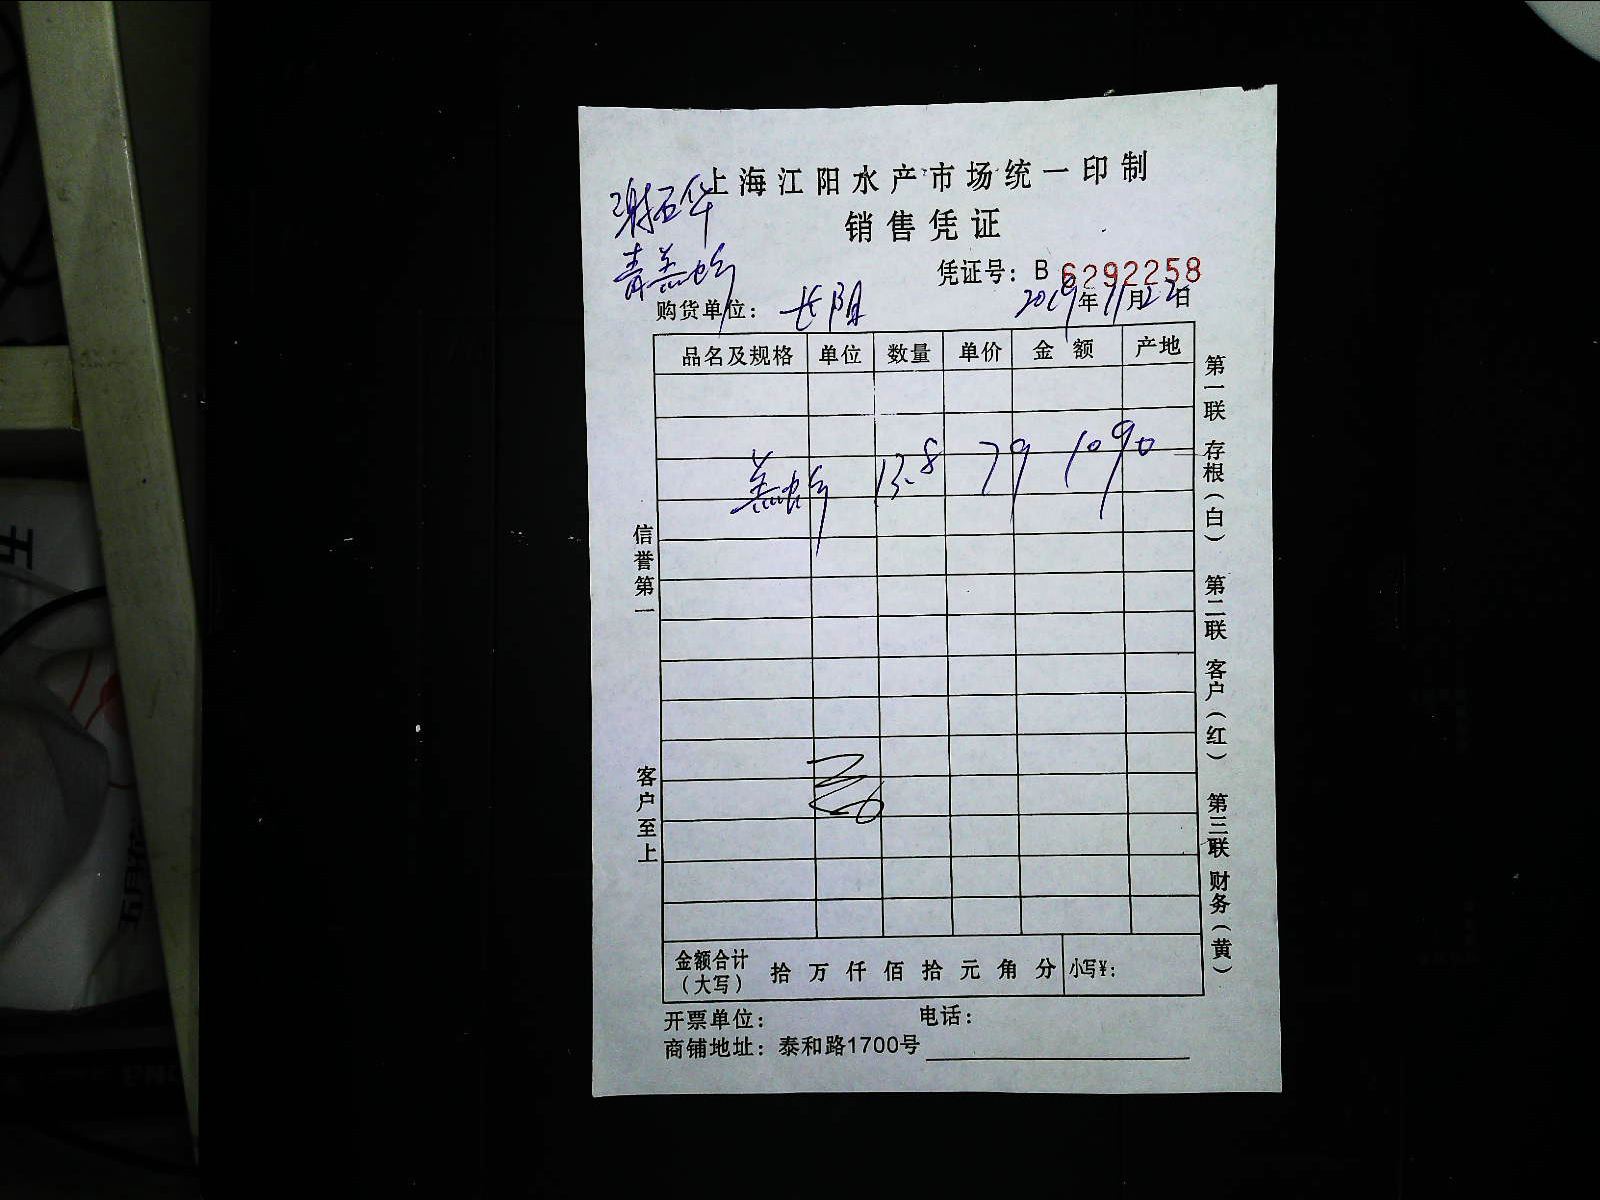 上海江阳水产市场统一印制
谢石华
销售凭证
凭证号：B 6292258
购货单位：长阳 2019年11月22日
品名及规格 单位 数量 单价 金额 产地
13.8 79 1090
金额合计（大写） 拾万仟佰拾元角分 小写¥：
开票单位： 电话：
商铺地址：泰和路1700号
信誉第一
客户至上
第一联 存根（白） 第二联 客户（红） 第三联 财务（黄）
五